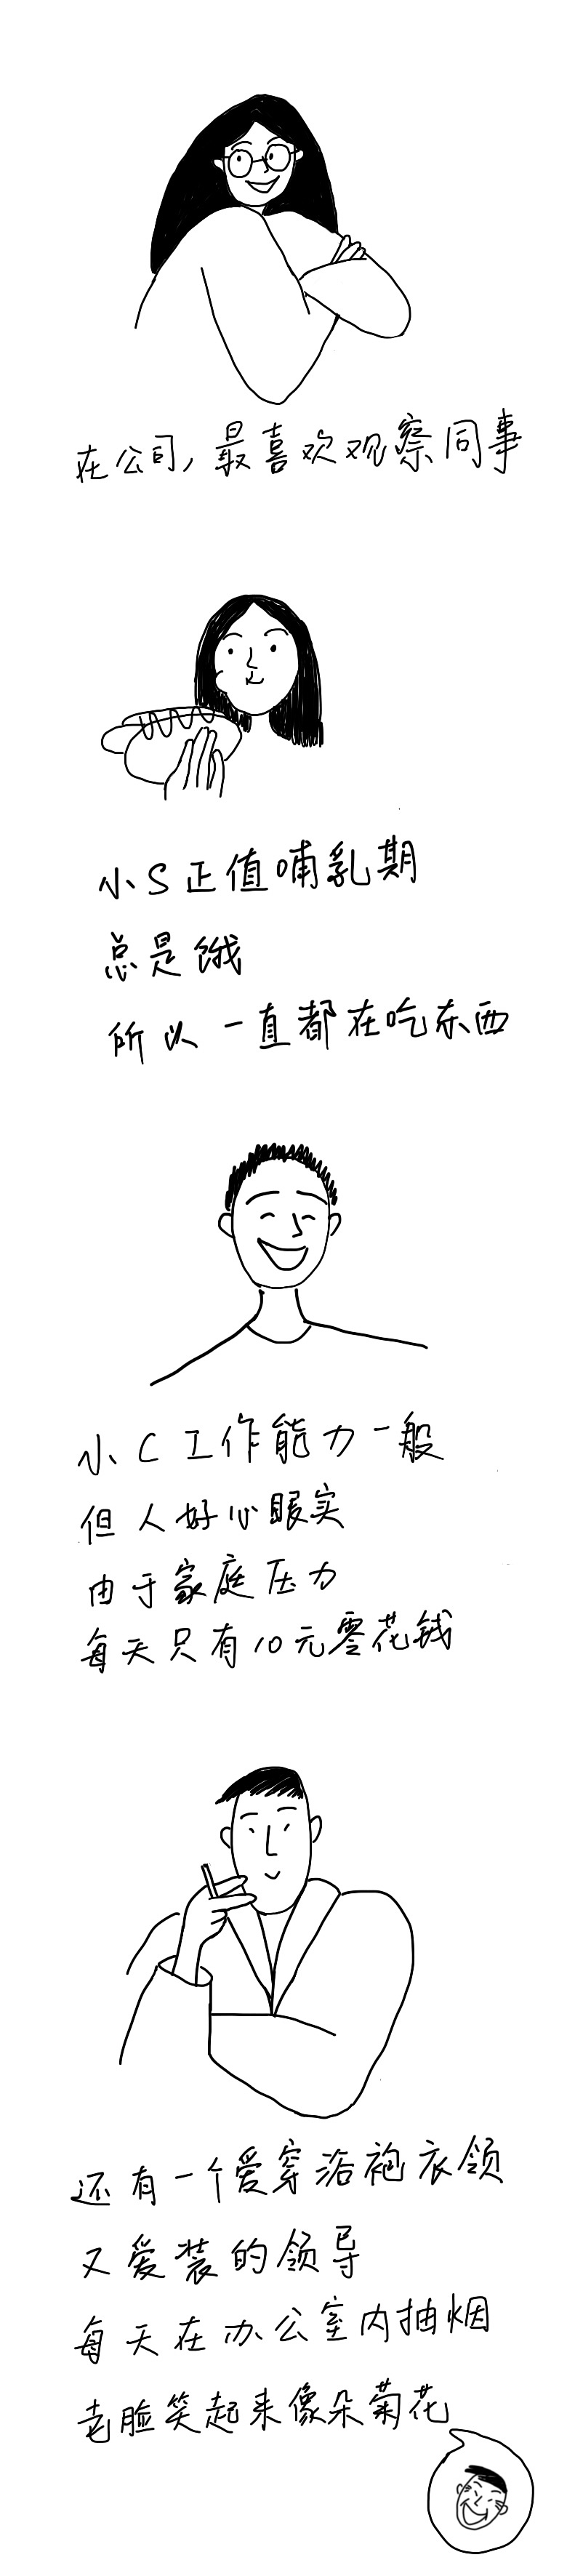 在公司，最喜欢观察同事
小S正值哺乳期
总是饿
所以一直都在吃东西
小C工作能力一般
但人好心眼实
由于家庭压力
每天只有10元零花钱
还有一个爱穿浴袍衣领
又爱装的领导
每天在办公室内抽烟
老脸笑起来像朵菊花